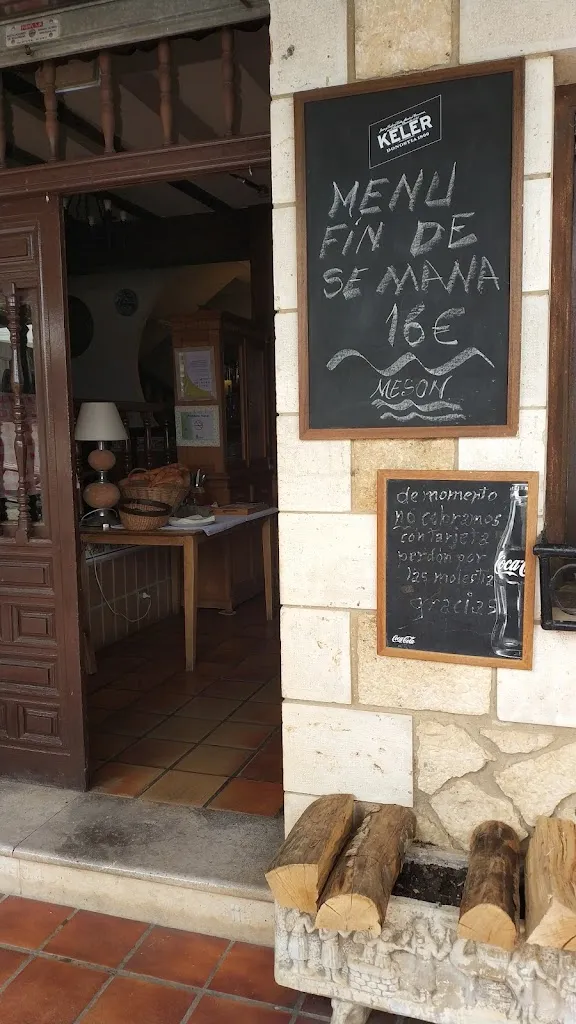 KELER
DONOSTIA 1890
MENU
FIN DE
SEMANA
16€
MESON
de momento
no cobramos
con tarjeta
perdón por
las molestia
gracias
Coca
Coca-Cola